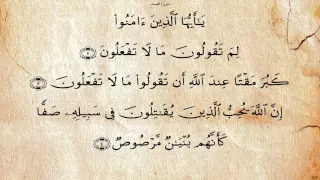 سورة الصف
يَـٰٓأَيُّهَا ٱلَّذِينَ ءَامَنُوا۟
لِمَ تَقُولُونَ مَا لَا تَفْعَلُونَ ٢
كَبُرَ مَقْتًا عِندَ ٱللَّهِ أَن تَقُولُوا۟ مَا لَا تَفْعَلُونَ ٣
إِنَّ ٱللَّهَ يُحِبُّ ٱلَّذِينَ يُقَـٰتِلُونَ فِى سَبِيلِهِۦ صَفًّا
كَأَنَّهُم بُنْيَـٰنٌ مَّرْصُوصٌ ٤